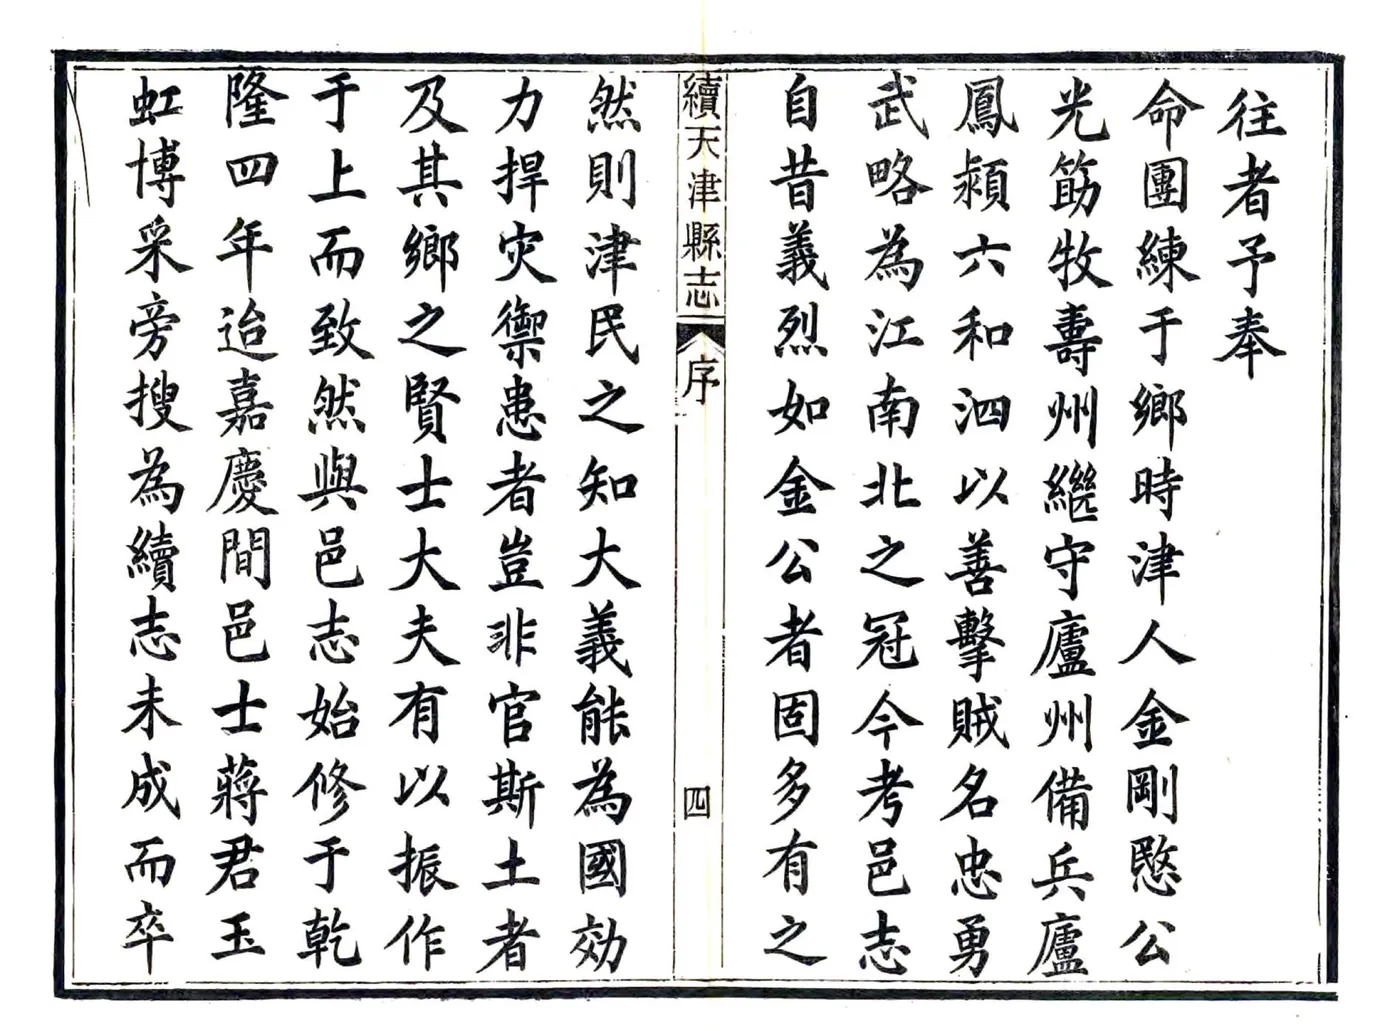 往者予奉
命團練于鄉時津人金剛愍公
光筯牧壽州繼守廬州備兵廬
鳳潁六和泗以善擊賊名忠勇
武略為江南北之冠今考邑志
自昔義烈如金公者固多有之
續天津縣志
序
四
然則津民之知大義能為國効
力捍灾禦患者豈非官斯土者
及其鄉之賢士大夫有以振作
于上而致然與邑志始修于乾
隆四年迨嘉慶間邑士蔣君玉
虹博采旁搜為續志未成而卒